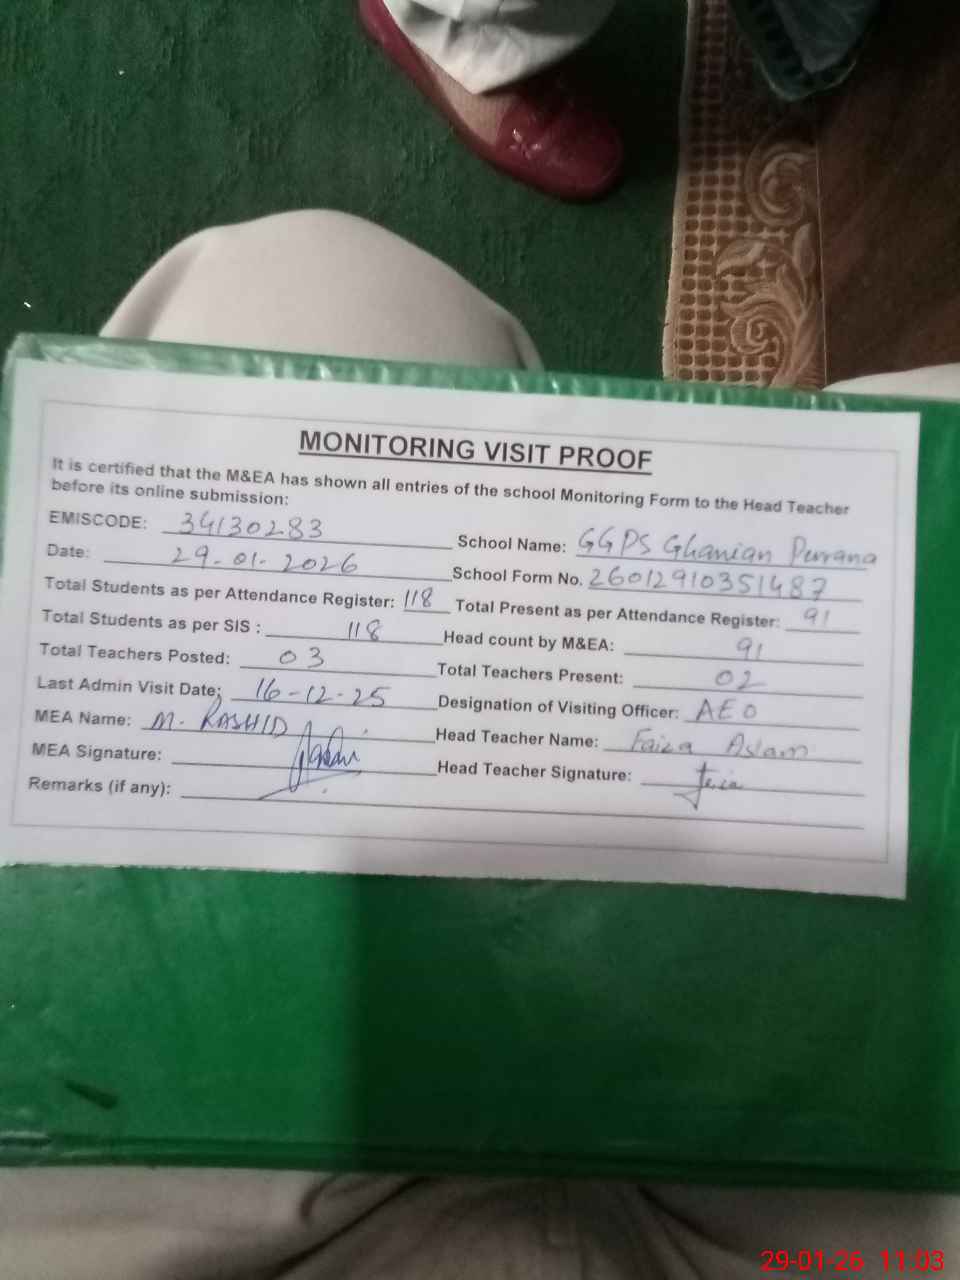 MONITORING VISIT PROOF
It is certified that the M&EA has shown all entries of the school Monitoring Form to the Head Teacher
before its online submission:
EMISCODE: 34130283 School Name: GGPS Ghanian Purrana
Date: 29-01-2026 School Form No. 26012910351487
Total Students as per Attendance Register: 118 Total Present as per Attendance Register: 91
Total Students as per SIS : 118 Head count by M&EA: 91
Total Teachers Posted: 03 Total Teachers Present: 02
Last Admin Visit Date: 16-12-25 Designation of Visiting Officer: AEO
MEA Name: M. RASHID Head Teacher Name: Faiza Aslam
MEA Signature: Head Teacher Signature:
Remarks (if any):
29-01-26 11:03